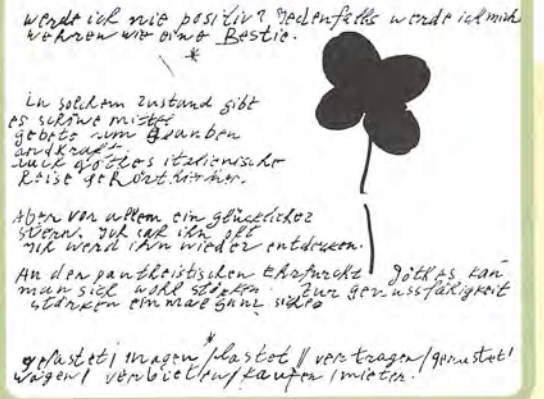 werde ich nie positiv? Jedenfalls werde ich mich
wehren wie eine Bestie.
*
in solchem Zustand gibt
es schöne mittel
gebete um Glauben
and kraft
auch göttes italienische
Reise gehört hierher.
Aber vor allem ein glücklicher
stern. Ich sah ihn oft
ich werd ihn wieder entdecken.
An der pantheistischen Ehrfurcht göthes kan
man sich wohl stärken. zur genussfähigkeit
stärken einmal ganz sicher
*
gefastet / magen / lastet // vertragen / gerustet /
wagen / verbieten / kaufen / mieter.